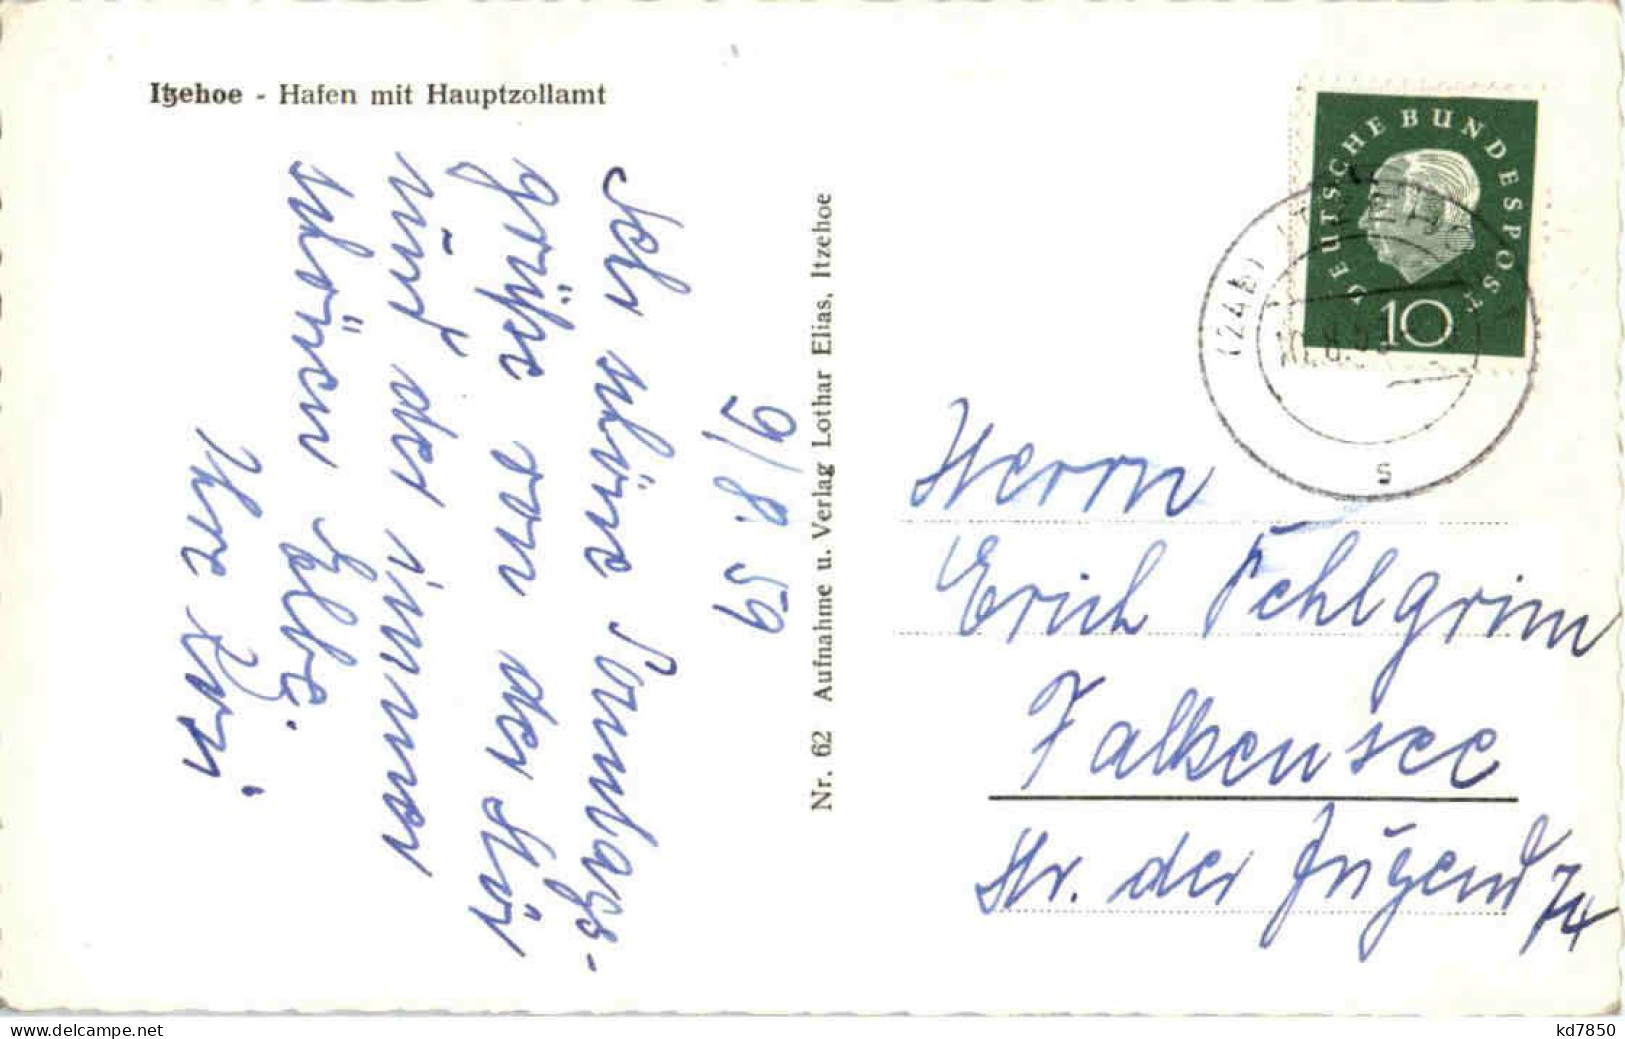 Itzehoe - Hafen mit Hauptzollamt
9/8. 59
Sehr schöne Sonntags-
grüße von der Stör
und der immer
schönen Elbe.
Ihre
Nr. 62 Aufnahme u. Verlag Lothar Elias, Itzehoe
DEUTSCHE BUNDESPOST
10
(24b)
.8.59
s
Herrn
Erich Fehlgrim
Falkensee
Str. der Jugend 74
www.delcampe.net
kd7850